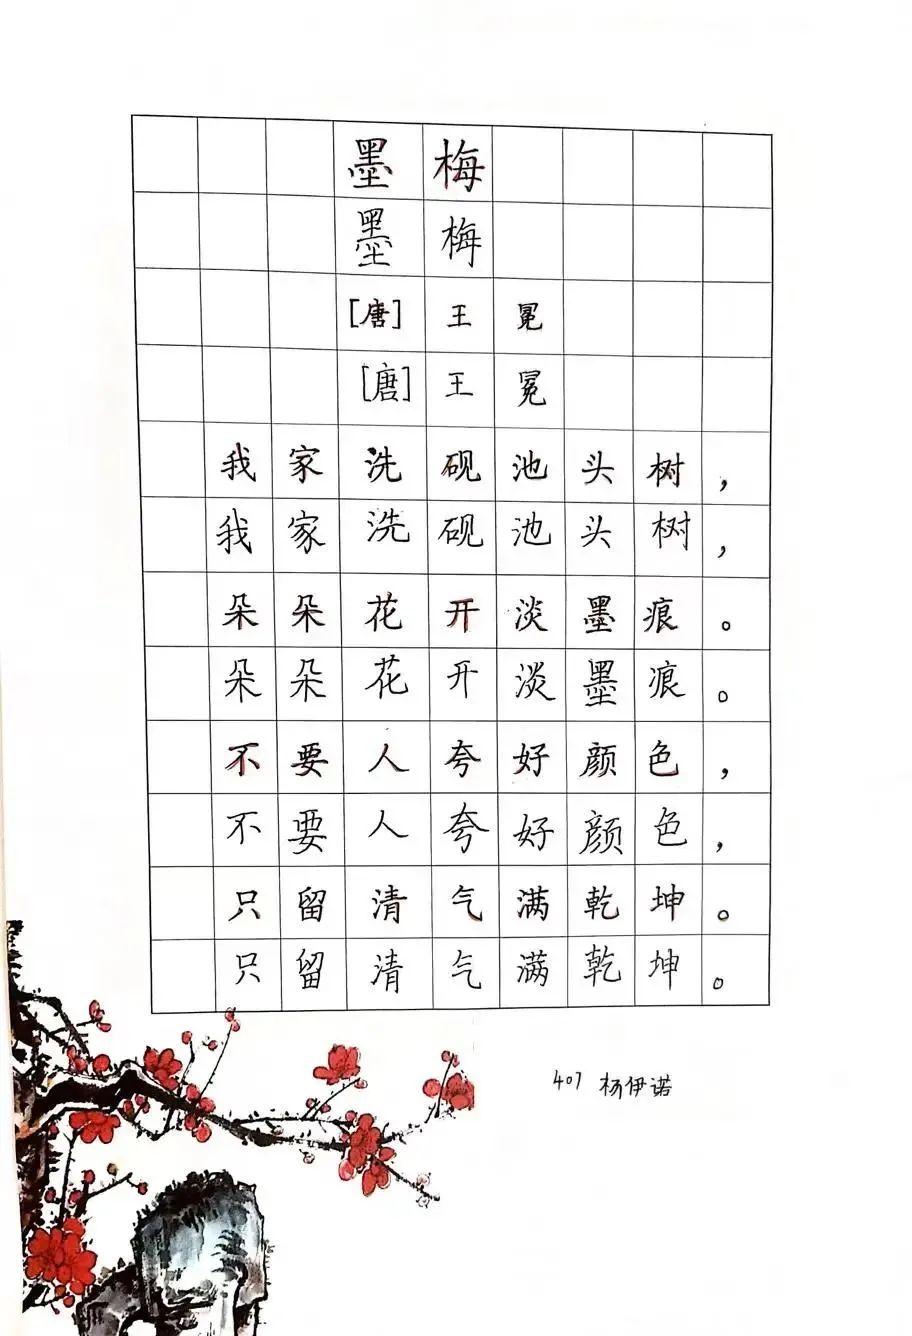 墨梅
墨梅
[唐] 王冕
[唐] 王冕
我家洗砚池头树，
我家洗砚池头树，
朵朵花开淡墨痕。
朵朵花开淡墨痕。
不要人夸好颜色，
不要人夸好颜色，
只留清气满乾坤。
只留清气满乾坤。
407 杨伊诺